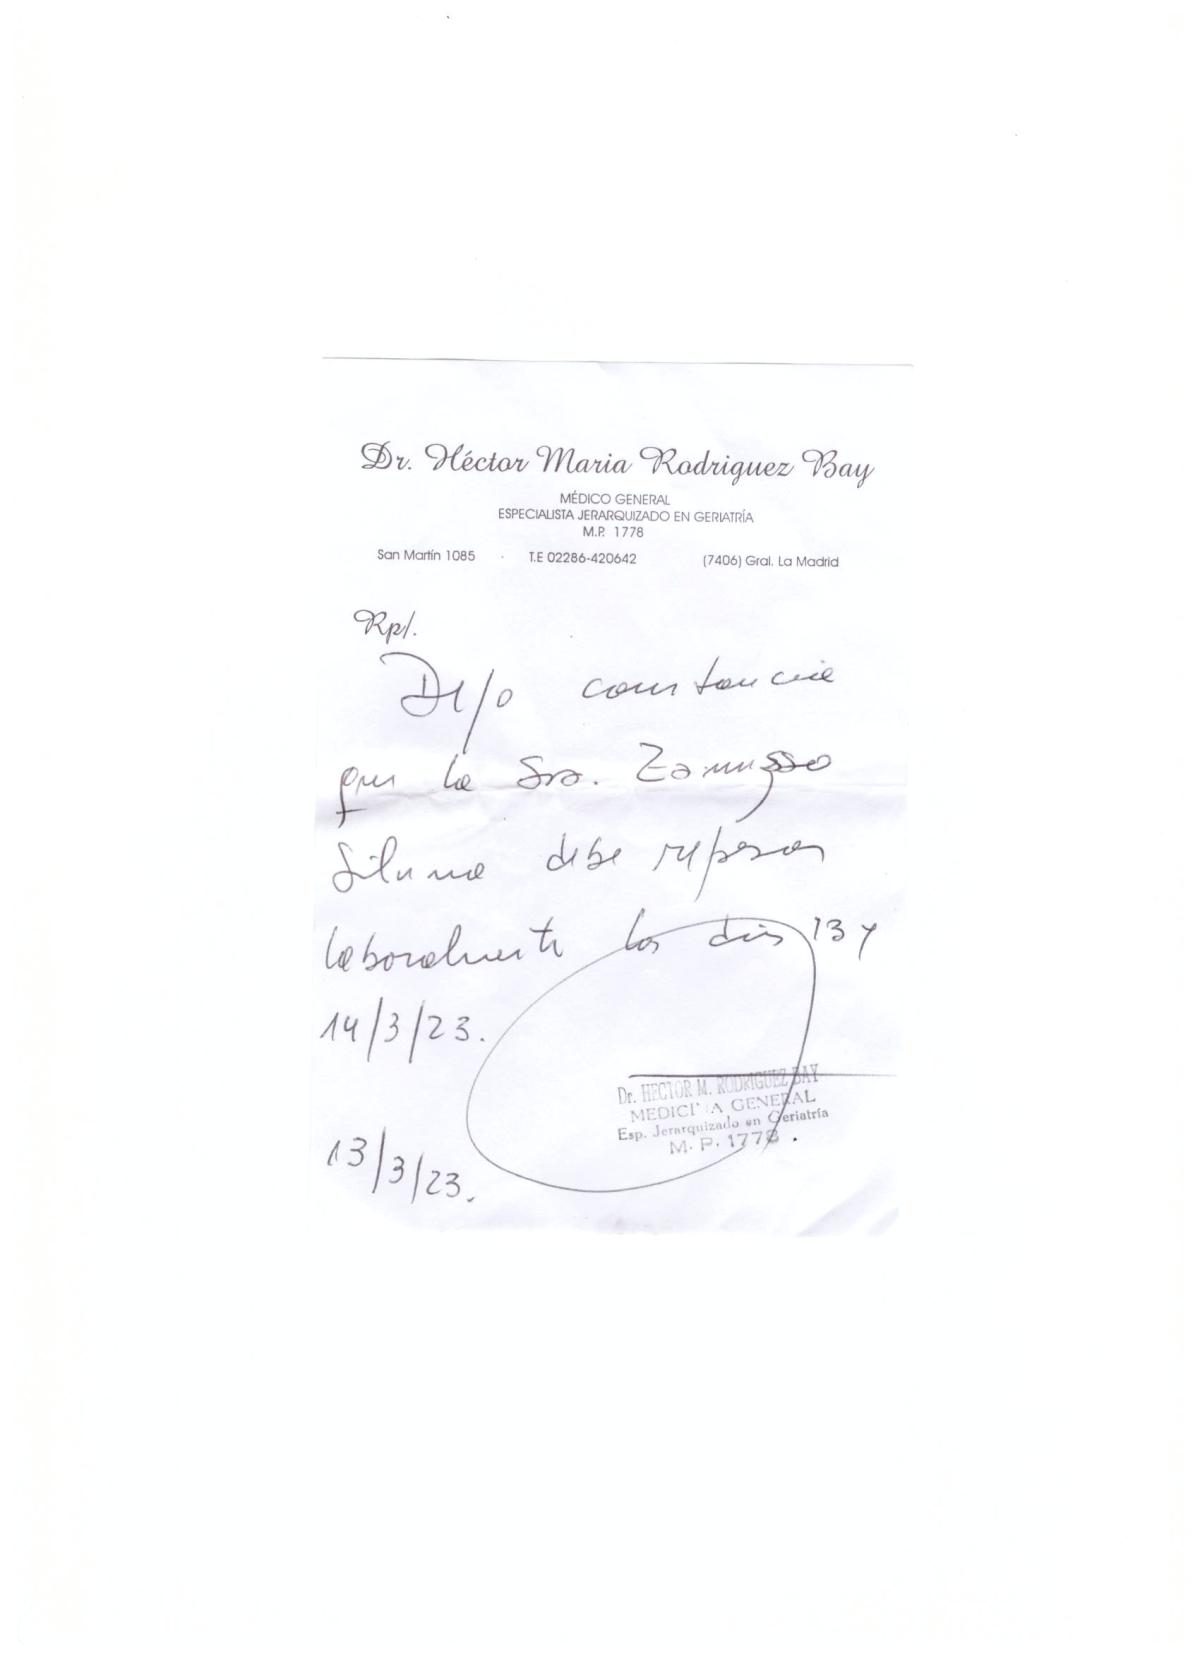 Dr. Héctor Maria Rodriguez Bay
MÉDICO GENERAL
ESPECIALISTA JERARQUIZADO EN GERIATRÍA
M.P. 1778
San Martín 1085 - T.E 02286-420642 (7406) Gral. La Madrid
Rp/.
Dejo constancia
que la Sra. Zamuzzo
Silvina debe reposar
laboralmente los días 13 y
14/3/23.
Dr. HECTOR M. RODRIGUEZ BAY
MEDICINA GENERAL
Esp. Jerarquizado en Geriatría
M. P. 1778.
13/3/23.